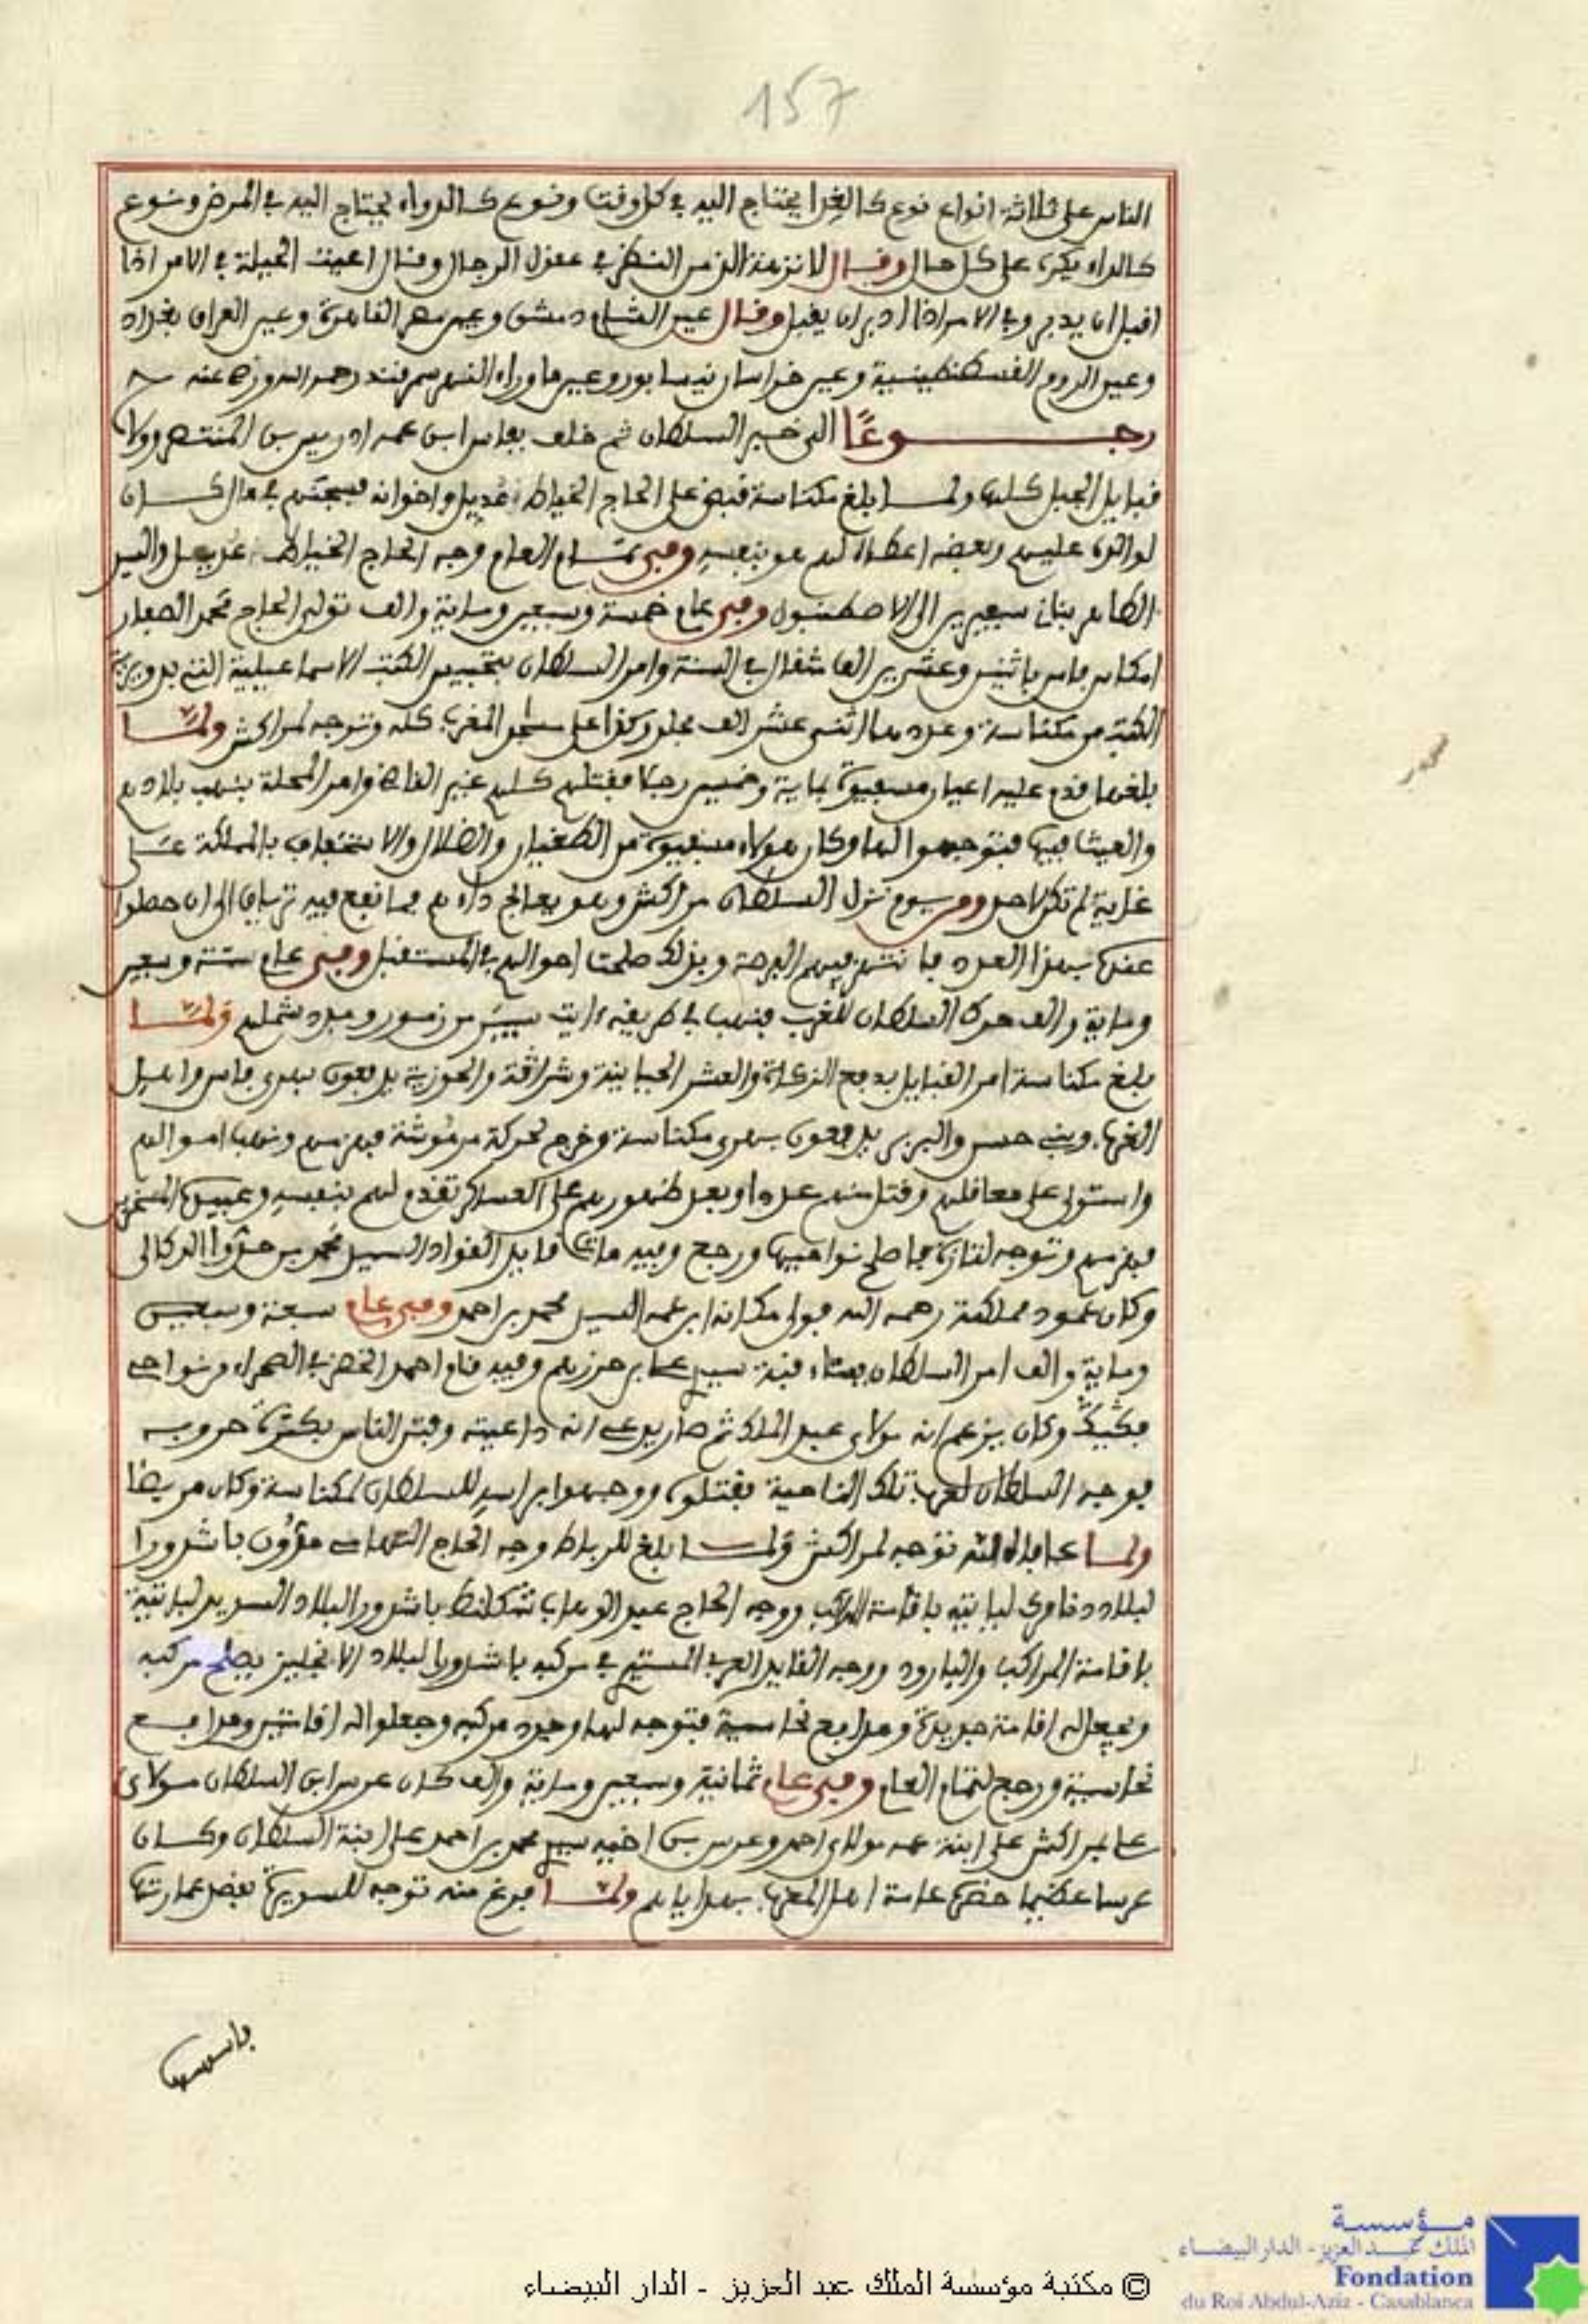 157
الناس على ثلاثة انواع نوع كالغذا يحتاج اليه في كل وقت ونوع كالدواء يحتاج اليه في المرض ونوع
كالداء يكره على كل حال وقال لا نزهة الذ من النظر في عقول الرجال وقال اعيت الحيلة في الامر اذا
اقبل ان يدبر وفي الامر اذا ادبر ان يقبل وقال عين الشام دمشق وعين مصر القاهرة وعين العراق بغداد
وعين الروم القسطنطينية وعين خراسان نيسابور وعين ما وراء النهر سمرقند رحمه الله ورضي عنه
رجوعا الى خبر السلطان ثم خلف بفاس ابن عمه ادريس بن المنتصر وولاه
قبايل الجبل كلها ولما بلغ مكناسة قبض على الحاج الخياط عديل واخوانه فسجنهم في مال كان
لوالده عليهم وبعضه اعطاه لهم هو بنفسه وفي تمام العام وجه الحاج الخياط عديل والسيد
الطاهر بناني سفيرين الى الاصطنبول وفي عام خمسة وسبعين وماية والف تولى الحاج محمد الصفار
امكاس فاس باثنين وعشرين الف مثقال في السنة وامر السلطان بتحبيس الكتب الاسماعيلية التي بدويرة
الكتب من مكناسة وعددها اثنى عشر الف مجلد وكذا على مساجد المغرب كله وتوجه لمراكش ولما
بلغها قدم عليه اعيان مسفيوة بماية وخمسين رجلا فقتلهم كلهم غير القاضي وامر المحلة بنهب بلادهم
والعيث فيها فتوجهوا لها وكان هولاء مسفيوة من الطغيان والضلال والاستخفاف بالمملكة على
غاية لم تكن لاحد ومن يوم نزل السلطان مراكش وهو يعالج داءهم فما نفع فيه ترياق الى ان حطوا
عنده بهذا العدد فانتهز فيهم الفرصة وبذلك صلحت احوالهم في المستقبل وفي عام ستة وسبعين
وماية والف حرك السلطان للغرب فنهب في طريقه ايت سيبر من زمور وبدد شملهم ولما
بلغ مكناسة امر القبايل بدفع الزكاة والعشر الحياينة وشراقة والحوزية يدفعون بهري فاس واهل
الغرب وبني حسن والبربر يدفعون بهري مكناسة وخرج لحركة مرموشة فهزمهم ونهب اموالهم
واستولى على معاقلهم وقتل منهم عددا وبعد ظهورهم على العساكر تقدم لهم بنفسه وعبيده المسخرين
فهزمهم وتوجه لتازة فاصلح نواحيها ورجع وفيه مات قايد القواد السيد محمد بن حدو الدكالي
وكان عمود مملكته رحمه الله فولى مكانه ابن عمه السيد محمد بن احمد وفي عام سبعة وسبعين
وماية والف امر السلطان ببناء قبة سيدي علي بن حرزهم وفيه قام احمد الخضر في الصحراء ونواحي
فجيج وكان يزعم انه مولاي عبد الملك ثم صار يدعي انه داعيته وفتن الناس بكثرة حروبه
فوجه السلطان لعرب تلك الناحية فقتلوه ووجهوا براسه للسلطان لمكناسة وكان مريضا
ولما عافاه الله توجه لمراكش ولما بلغ للرباط وجه الحاج التهامي مدون باشدورا
لبلاد دنامرك لياتيه باقامة المراكب ووجه الحاج عبد الوهاب شكلانط باشدور البلاد السويد لياتيه
باقامة المراكب والبارود ووجه القايد العربي المستيري في مركبه باشدورا لبلاد الانجليز يصلح مركبه
ويجعل له اقامة جديدة ومدافع نحاسية فتوجه لها وجدد مركبه وجعلوا له اقامتين ومدافع
نحاسية ورجع لتمام العام وفي عام ثمانية وسبعين وماية والف كان عرس ابن السلطان مولاي
علي بمراكش على ابنة عمه مولاي احمد وعرس بن اخيه سيدي محمد بن احمد على ابنة السلطان وكان
عرسا عظيما حضره عامة اهل المغرب بهداياهم ولما فرغ منه توجه للسويرة بقصد عمارتها
© مكتبة مؤسسة الملك عبد العزيز - الدار البيضاء
مؤسسة
الملك عبد العزيز - الدار البيضاء
Fondation
du Roi Abdul-Aziz - Casablanca